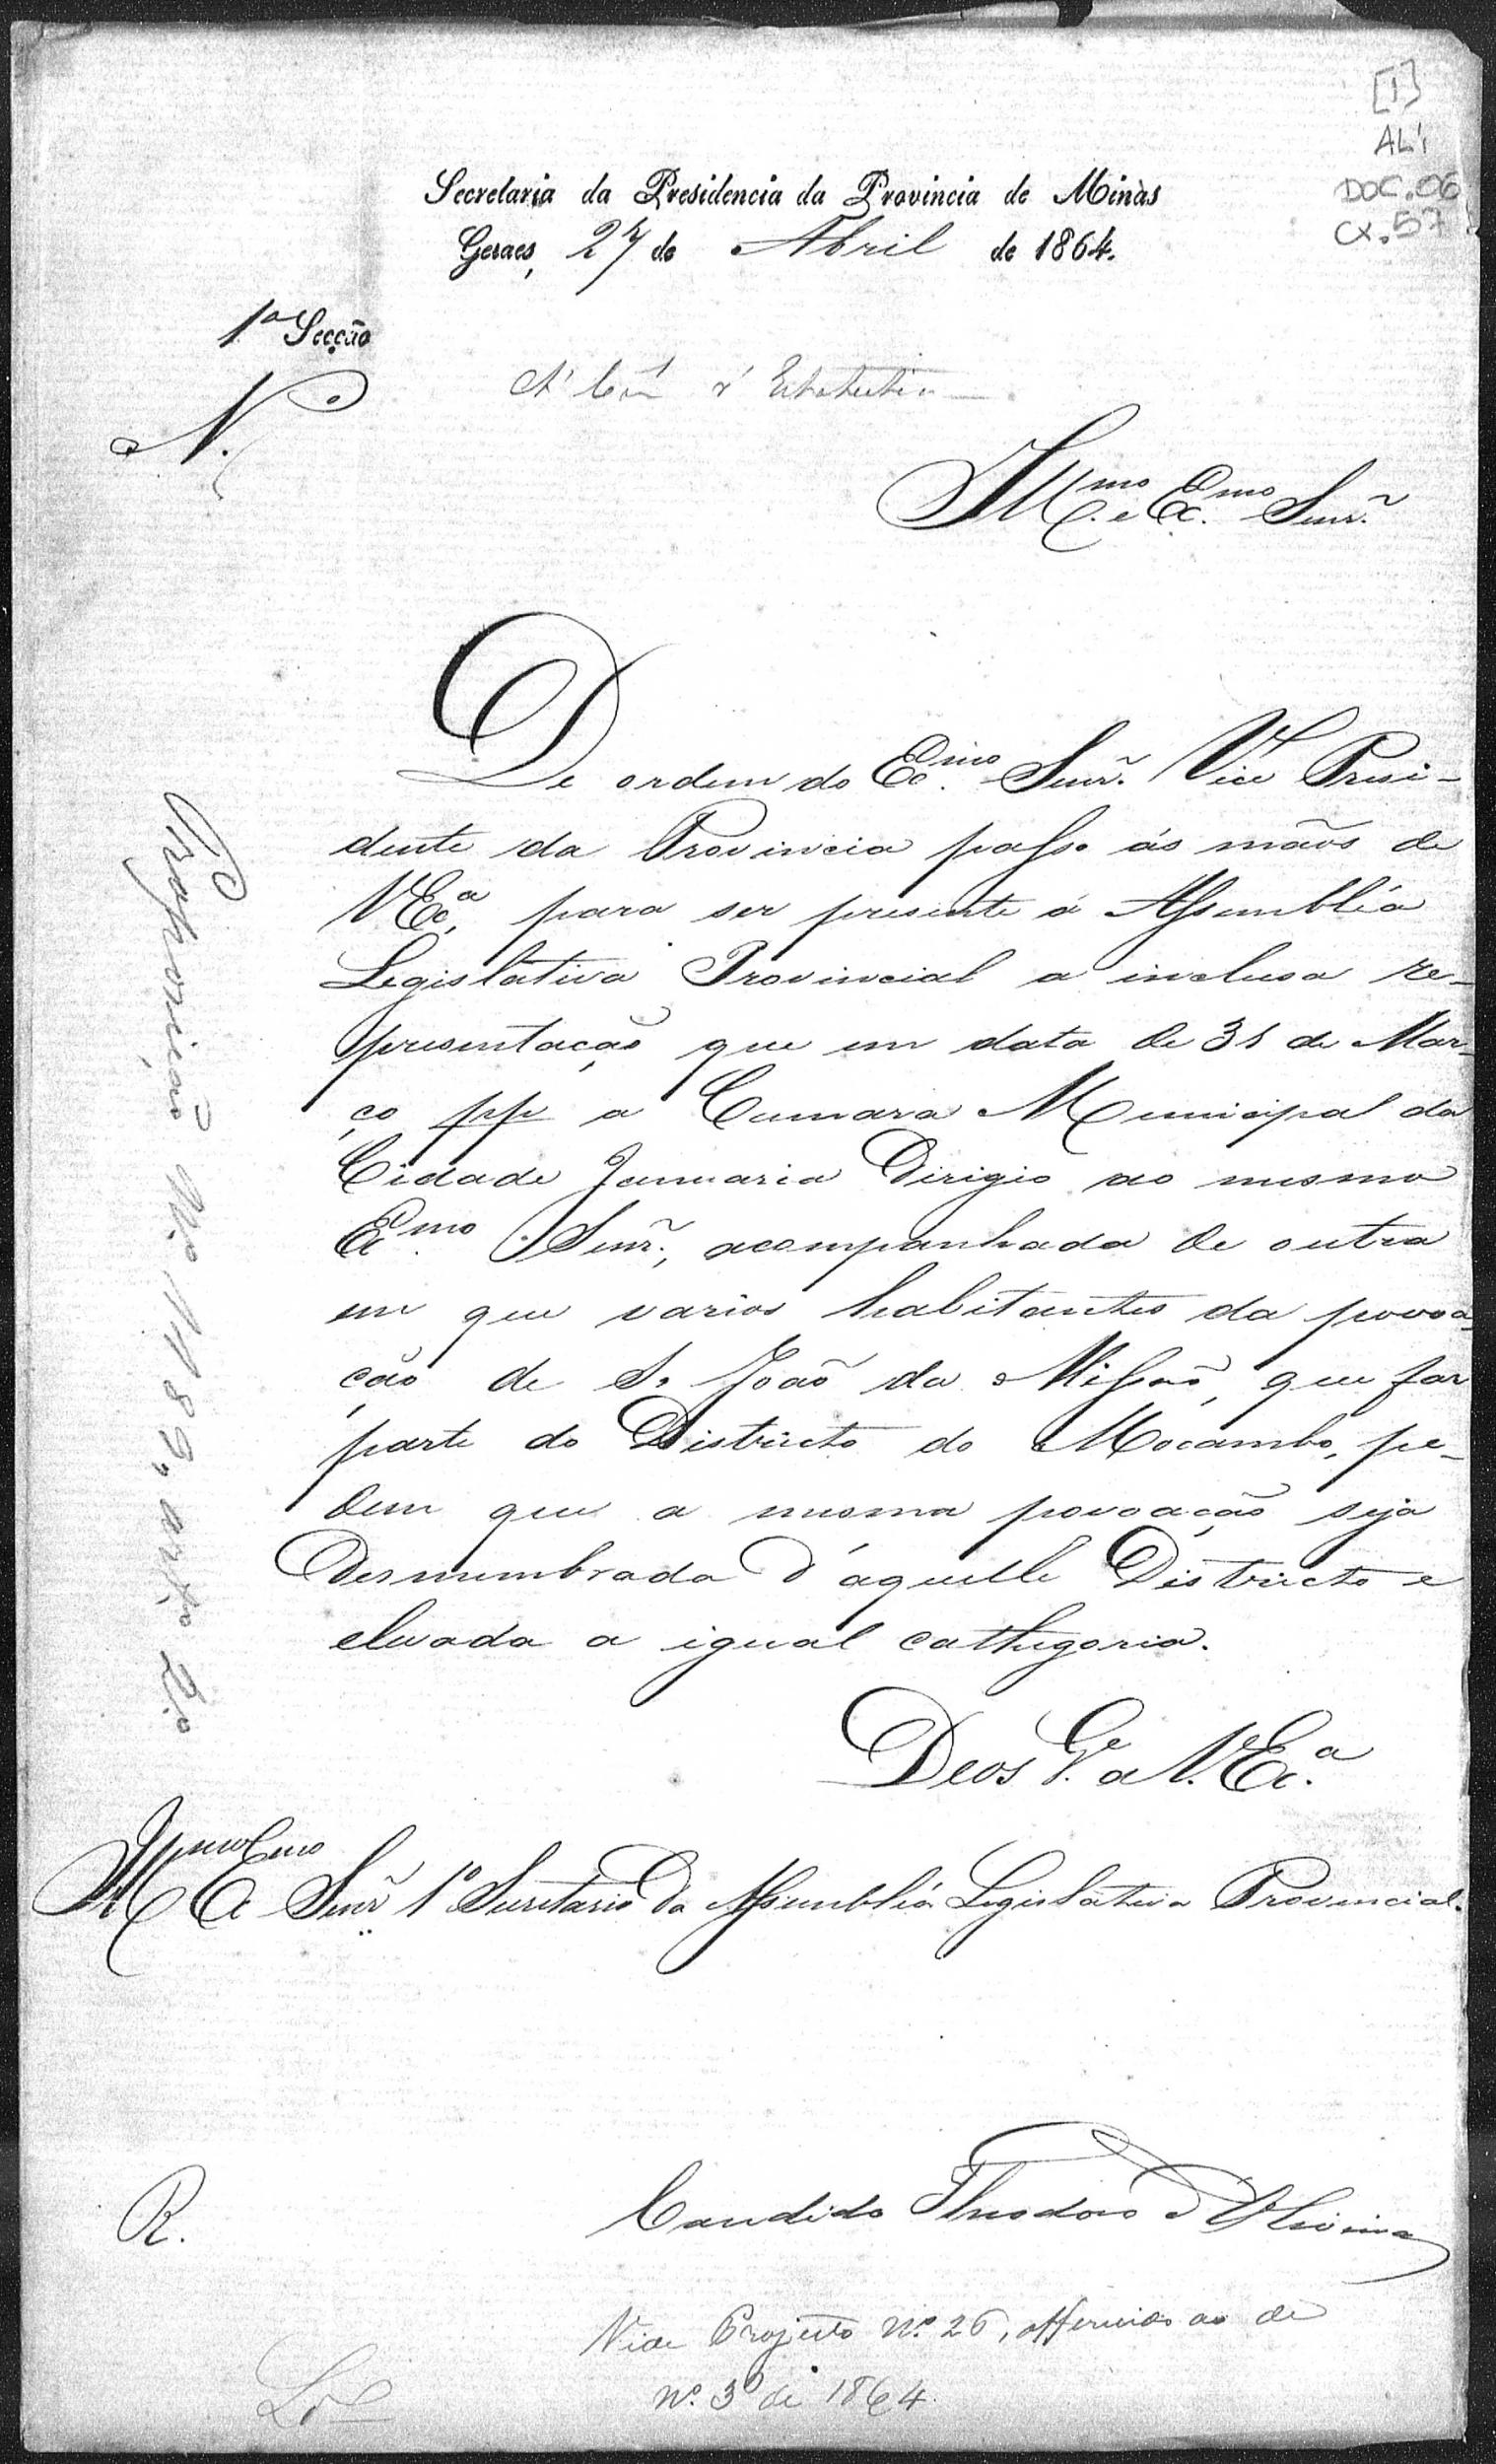 [1]
AL1
DOC.06
CX.57
Secretaria da Presidencia da Provincia de Minas
Geraes, 27 de Abril de 1864.
1ª Secção
N.
Á Com
Illmo. e Exmo. Senr.
De ordem do Exmo. Senr. Vice Presi-
dente da Provincia passo ás mãos de
V Exª. para ser presente á Assembléa
Legislativa Provincial a inclusa re-
presentação que em data de 31 de Mar-
ço pp a Camara Municipal da
Cidade Januaria dirigio ao mesmo
Exmo. Senr., acompanhada de outra
em que varios habitantes da povoa-
ção de S. João da Missão, que faz
parte do Districto do Mocambo, pe-
dem que a mesma povoação seja
desmembrada d'aquelle Districto e
elevada a igual cathegoria.
Deos G.e a V. Exª.
Illmo Exmo Senr 1º Secretario da Assembléa Legislativa Provincial.
Candido Theodoro d'Oliveira
R.
Vide Projecto nº 26, offerecido ao de
nº 3 de 1864.
Proposição Nº 1189, artº 2º